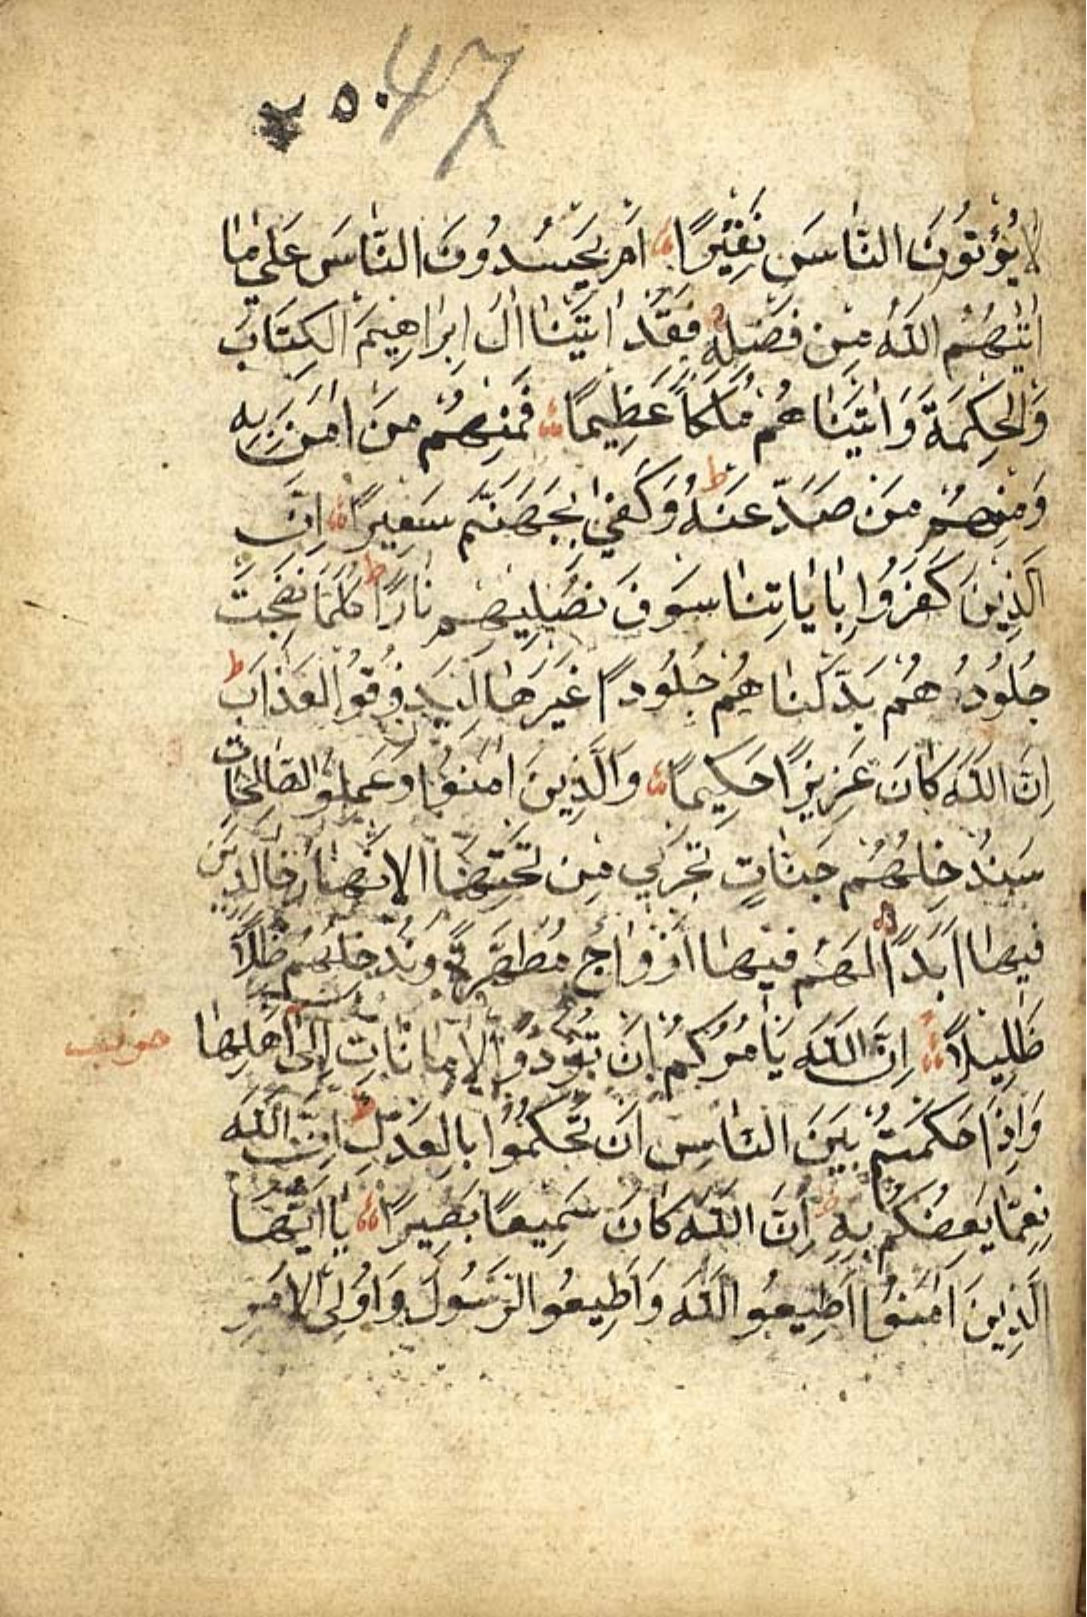 ٥٠ 47
لا يُؤْتُونَ النَّاسَ نَقِيرًا اَمْ يَحْسُدُونَ النَّاسَ عَلٰى مَا
اٰتٰيهُمُ اللّٰهُ مِنْ فَضْلِهِ فَقَدْ اٰتَيْنَا اٰلَ اِبْرَاهِيمَ الْكِتَابَ
وَالْحِكْمَةَ وَاٰتَيْنَاهُمْ مُلْكًا عَظِيمًا فَمِنْهُمْ مَنْ اٰمَنَ بِهِ
وَمِنْهُمْ مَنْ صَدَّ عَنْهُ ط وَكَفٰى بِجَهَنَّمَ سَعِيرًا اِنَّ
الَّذِينَ كَفَرُوا بِاٰيَاتِنَا سَوْفَ نُصْلِيهِمْ نَارًا ط كُلَّمَا نَضِجَتْ
جُلُودُهُمْ بَدَّلْنَاهُمْ جُلُودًا غَيْرَهَا لِيَذُوقُوا الْعَذَابَ ط
اِنَّ اللّٰهَ كَانَ عَزِيزًا حَكِيمًا وَالَّذِينَ اٰمَنُوا وَعَمِلُوا الصَّالِحَاتِ
سَنُدْخِلُهُمْ جَنَّاتٍ تَجْرِي مِنْ تَحْتِهَا الْاَنْهَارُ خَالِدِينَ
فِيهَا اَبَدًا لَهُمْ فِيهَا اَزْوَاجٌ مُطَهَّرَةٌ وَنُدْخِلُهُمْ ظِلًّا
ظَلِيلًا اِنَّ اللّٰهَ يَأْمُرُكُمْ اَنْ تُؤَدُّوا الْاَمَانَاتِ اِلٰى اَهْلِهَا
وَاِذَا حَكَمْتُمْ بَيْنَ النَّاسِ اَنْ تَحْكُمُوا بِالْعَدْلِ ط اِنَّ اللّٰهَ
نِعِمَّا يَعِظُكُمْ بِهِ ط اِنَّ اللّٰهَ كَانَ سَمِيعًا بَصِيرًا يَا اَيُّهَا
الَّذِينَ اٰمَنُوا اَطِيعُوا اللّٰهَ وَاَطِيعُوا الرَّسُولَ وَاُولِى الْاَمْرِ